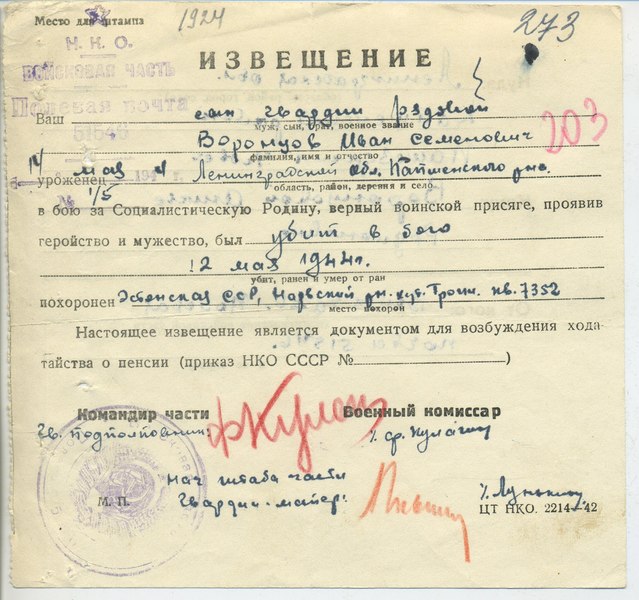 Место для штампа
1924
273
Н. К. О.
ВОЙСКОВАЯ ЧАСТЬ
Полевая почта
51546
ИЗВЕЩЕНИЕ
Ваш сын гвардии рядовой
муж, сын, брат, военное звание
Воронцов Иван Семенович
203
фамилия, имя и отчество
14 мая 194 4 г.
уроженец Ленинградской обл. рна.
область, район, деревня и село
№ 1/5
в бою за Социалистическую Родину, верный воинской присяге, проявив
геройство и мужество, был убит в бою
12 мая 1944г.
убит, ранен и умер от ран
похоронен Эстонская ССР, Нарвский рн. кв. 7352
место похорон
Настоящее извещение является документом для возбуждения хода-
тайства о пенсии (приказ НКО СССР № )
Командир части
Военный комиссар
Гв. подполковник:
/Кулагин
нач штаба части
Гвардии-майор:
М. П.
ЦТ НКО. 2214—42